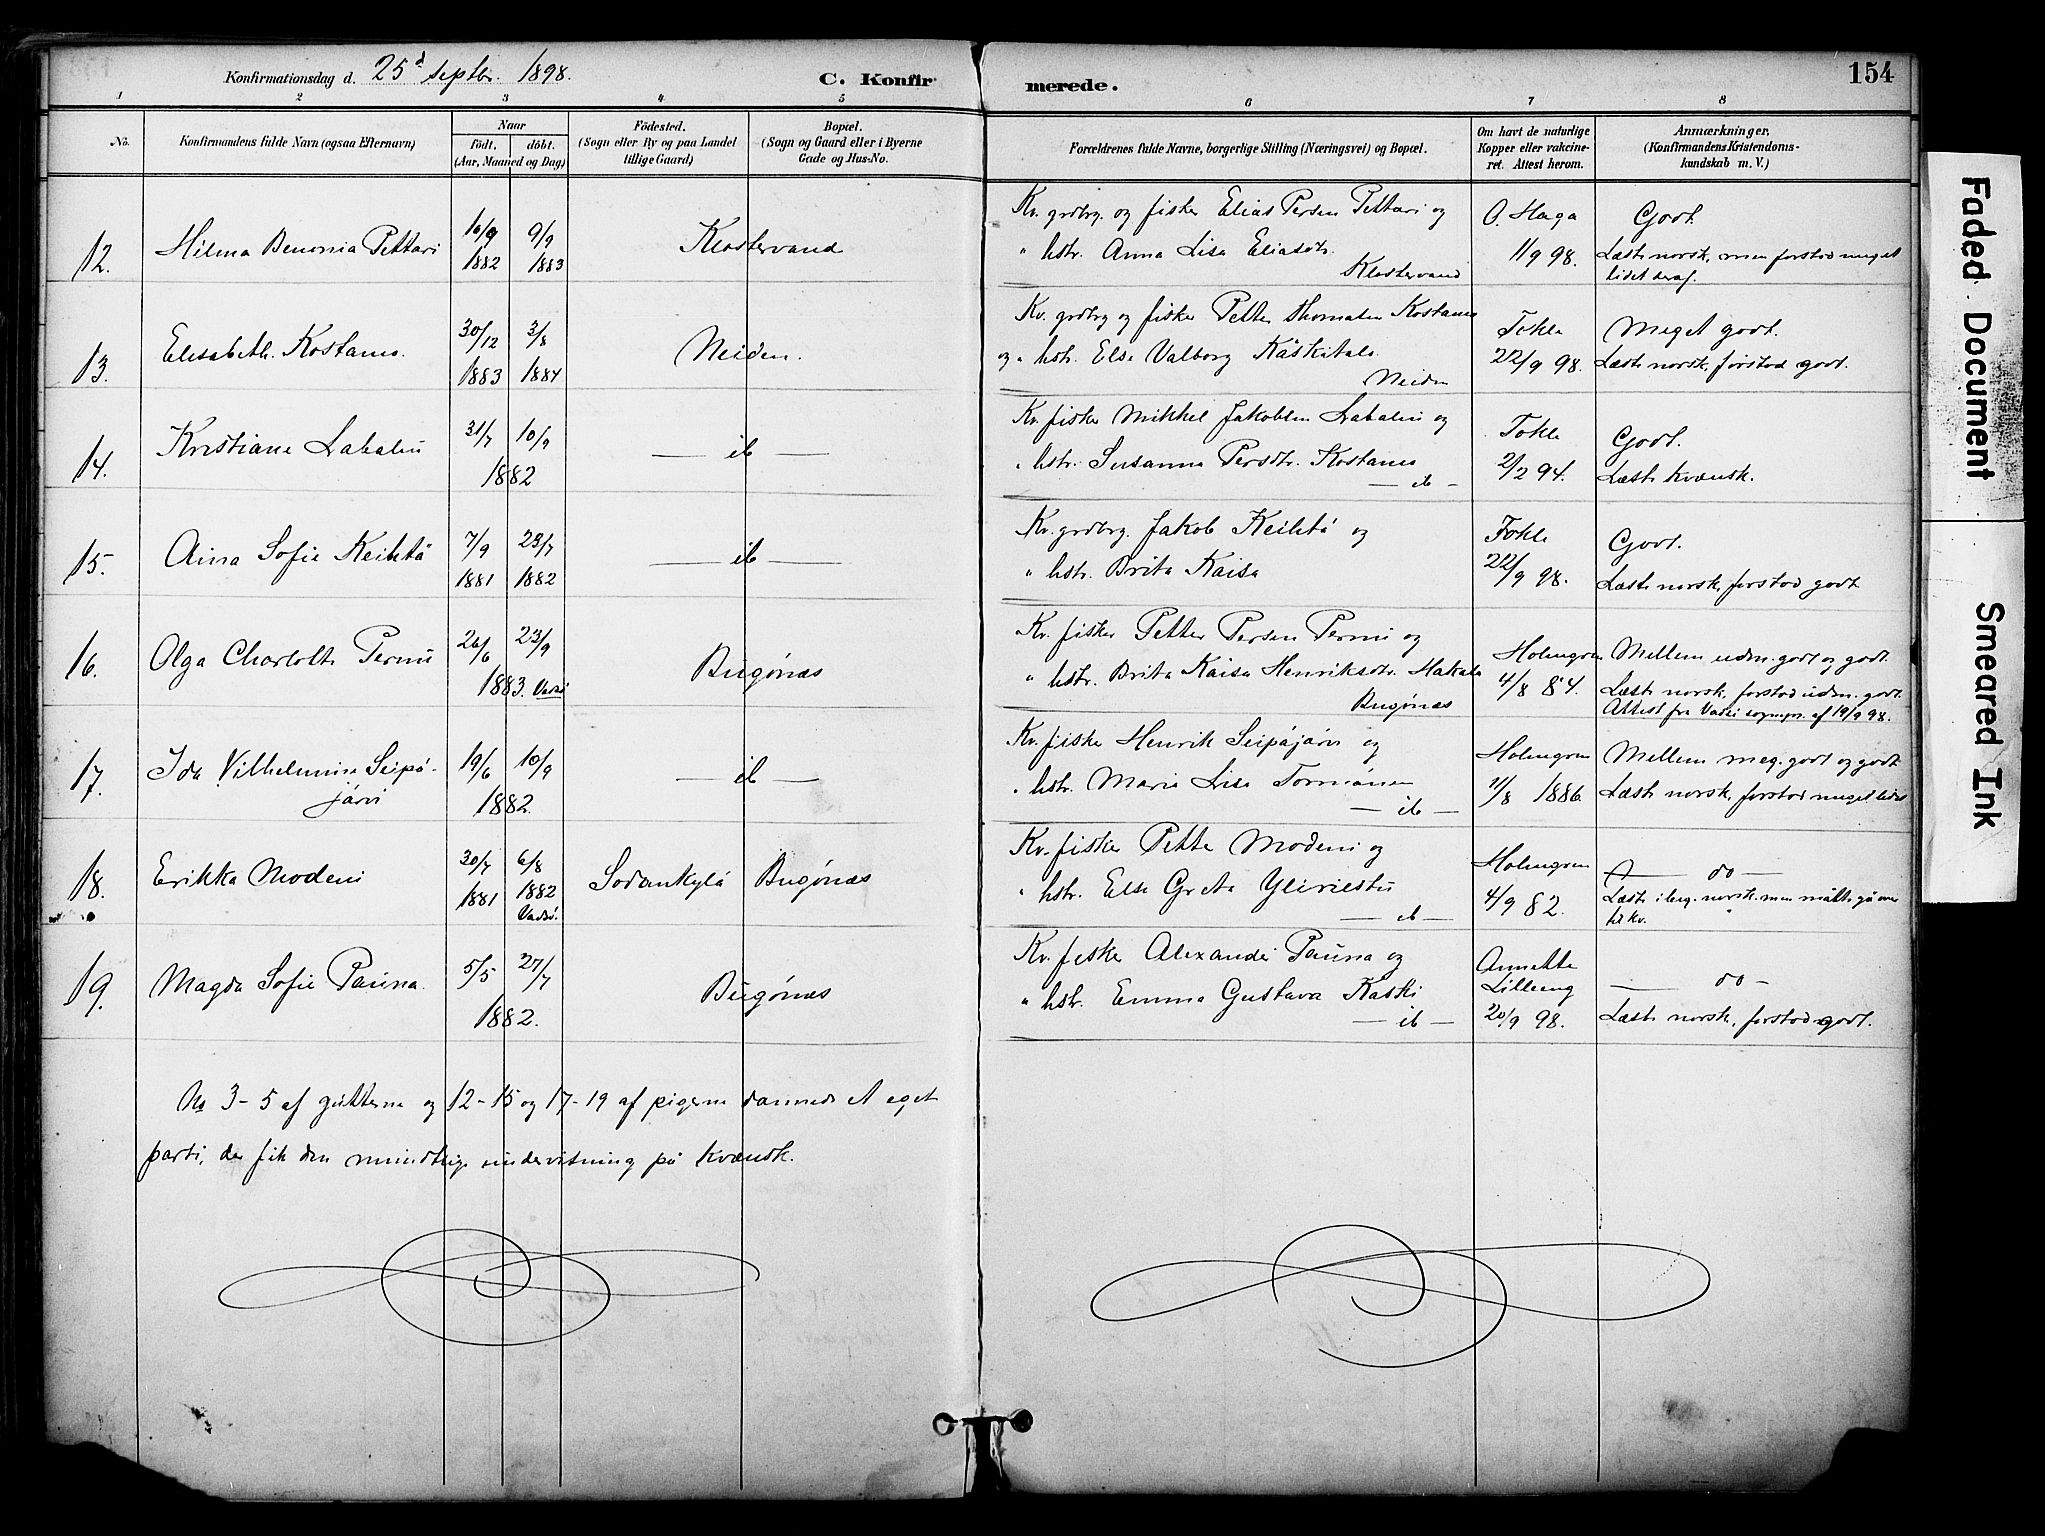 Konfirmationsdag d. 25d septbr. 1898.
C. Konfirmerede.
154
1 2 3 4 5 6 7 8
No.
Konfirmandens fulde Navn (ogsaa Efternavn)
Naar
født. døbt.
(Aar, Maaned og Dag)
Fødested.
(Sogn eller By og paa Landet
tillige Gaard)
Bopæl.
(Sogn og Gaard eller i Byerne
Gade og Hus-No.
Forældrenes fulde Navne, borgerlige Stilling (Næringsvei) og Bopæl.
Om havt de naturlige
Kopper eller vakcine-
ret. Attest herom.
Anmærkninger,
(Konfirmandens Kristendoms-
kundskab m. V.)
12. Hilma Benonia Pettari
16/9 1882
9/9 1883
Klostervand
Kv. grdbrg. og fisker Elias Persen Pettari og
" hstr. Anna Lisa Eliasdtr.
Klostervand
O. Haga
11/9 98.
Godt.
Læste norsk, men forstod meget
lidet deraf.
13. Elisabeth Kostamo.
30/12 1883
3/8 1884
Neiden.
Kv. grdbrg og fisker Petter Thomasen Kostamo
og " hstr. Else Valborg Käskitalo.
Neiden
Tokle
22/9 98.
Meget godt.
Læste norsk, forstod godt.
14. Kristiane Labahu
31/7 10/9
1882
— ib —
Kv. fisker Mikkel Jakobsen Labahu og
" hstr. Susanna Persdtr. Kostamo
— ib —
Tokle
2/2 94.
Godt.
Læste kvænsk.
15. Aina Sofie Keihtä
7/9 1881
23/7 1882
— ib —
Kv. grdbrg. Jakob Keihtä og
" hstr. Brita Kaisa
Tokle
22/9 98.
Godt.
Læste norsk, forstod godt
16. Olga Charlotte Permi
26/6 23/9
1883. Vadsø
Bugønæs
Kv. fisker Petter Persen Permi og
" hstr. Brita Kaisa Henriksdtr. Hakala
Bugønæs
Holmgren
4/8 84.
Mellem udm. godt og godt.
Læste norsk, forstod udm. godt.
Attest fra Vadsø sognepr. af 19/9 98.
17. Ida Vilhelmine Seipä-
järvi
19/6 10/9
1882.
— ib —
Kv. fisker Henrik Seipäjärvi og
" hstr. Maria Lisa Tormänen
— ib —
Holmgren
11/8 1886.
Mellem meg. godt og godt
Læste norsk, forstod meget lidet
18. Erikka Modeni
30/7 1881
6/8 1882
Vadsø.
Sodankylä
Bugønæs
Kv. fisker Petter Modeni og
" hstr. Else Greta Yliriesto
— ib —
Holmgren
4/9 82.
— do —
Læste i beg. norsk, men måtte gå over
til kv.
19. Magda Sofie Pauna.
5/5 27/7
1882.
Bugønæs
Kv. fisker Alexander Pauna og
" hstr. Emma Gustava Kaski
— ib —
Annette
Lilleeng
20/9 98.
— do —
Læste norsk, forstod godt.
No 3-5 af gutterne og 12-15 og 17-19 af pigerne dannede et eget
parti, der fik den mundtlige undervisning på kvænsk.
Faded Document
Smeared Ink